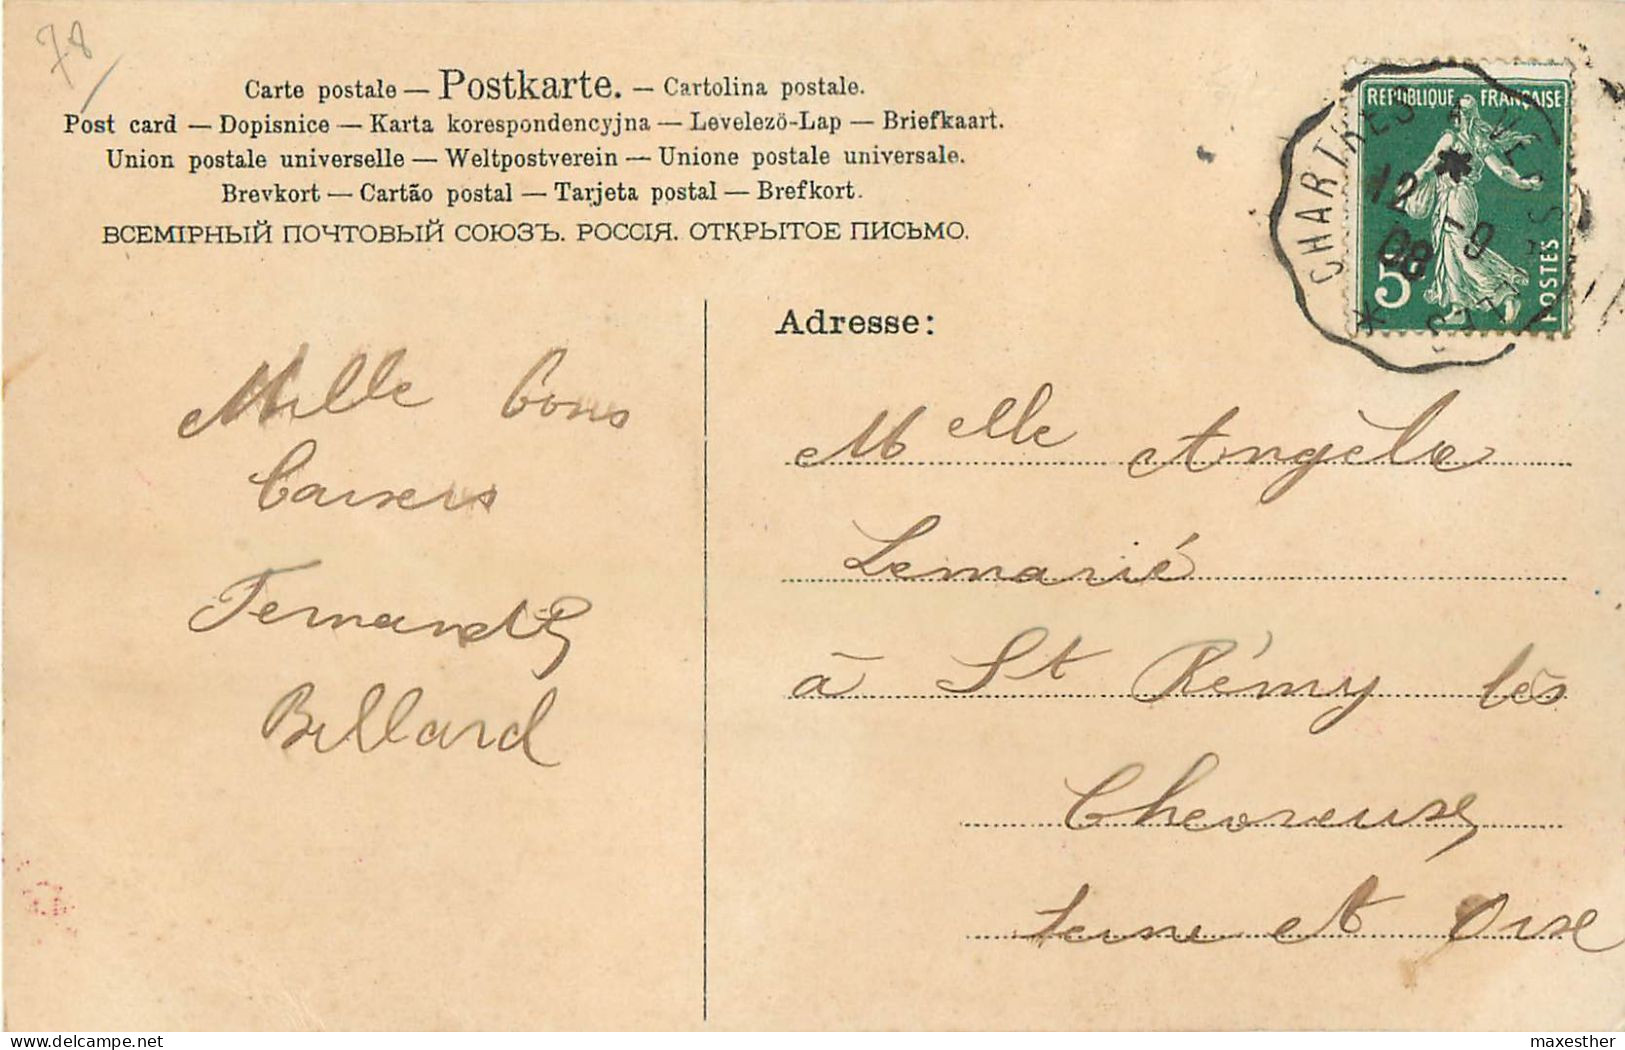 78
Carte postale — Postkarte. — Cartolina postale.
Post card — Dopisnice — Karta korespondencyjna — Levelező-Lap — Briefkaart.
Union postale universelle — Weltpostverein — Unione postale universale.
Brevkort — Cartão postal — Tarjeta postal — Brefkort.
ВСЕМІРНЫЙ ПОЧТОВЫЙ СОЮЗЪ. РОССІЯ. ОТКРЫТОЕ ПИСЬМО.
REPUBLIQUE FRANÇAISE
5c
POSTES
CHARTRES A VERSAILLES
12 - 9
08
Mille bons
baisers
Fernand
Billard
Adresse:
Melle Angèle
Lemarié
à St Rémy lès
Chevreuse
Seine et Oise
maxesther